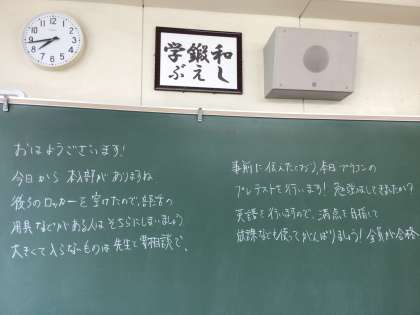 和し
鍛え
学ぶ
おはようございます!
今日から 本入部がありますね
後ろのロッカーを空けたので、部活の
用具などがある人はそちらにしまいましょう
大きくて入らないものは先生と要相談で、
事前に伝えたとおり、本日
プレテストを行います! 勉強はしてきましたか?
英語を行いますので、満点を目指して
放課なども使ってがんばりましょう! 全員が合格